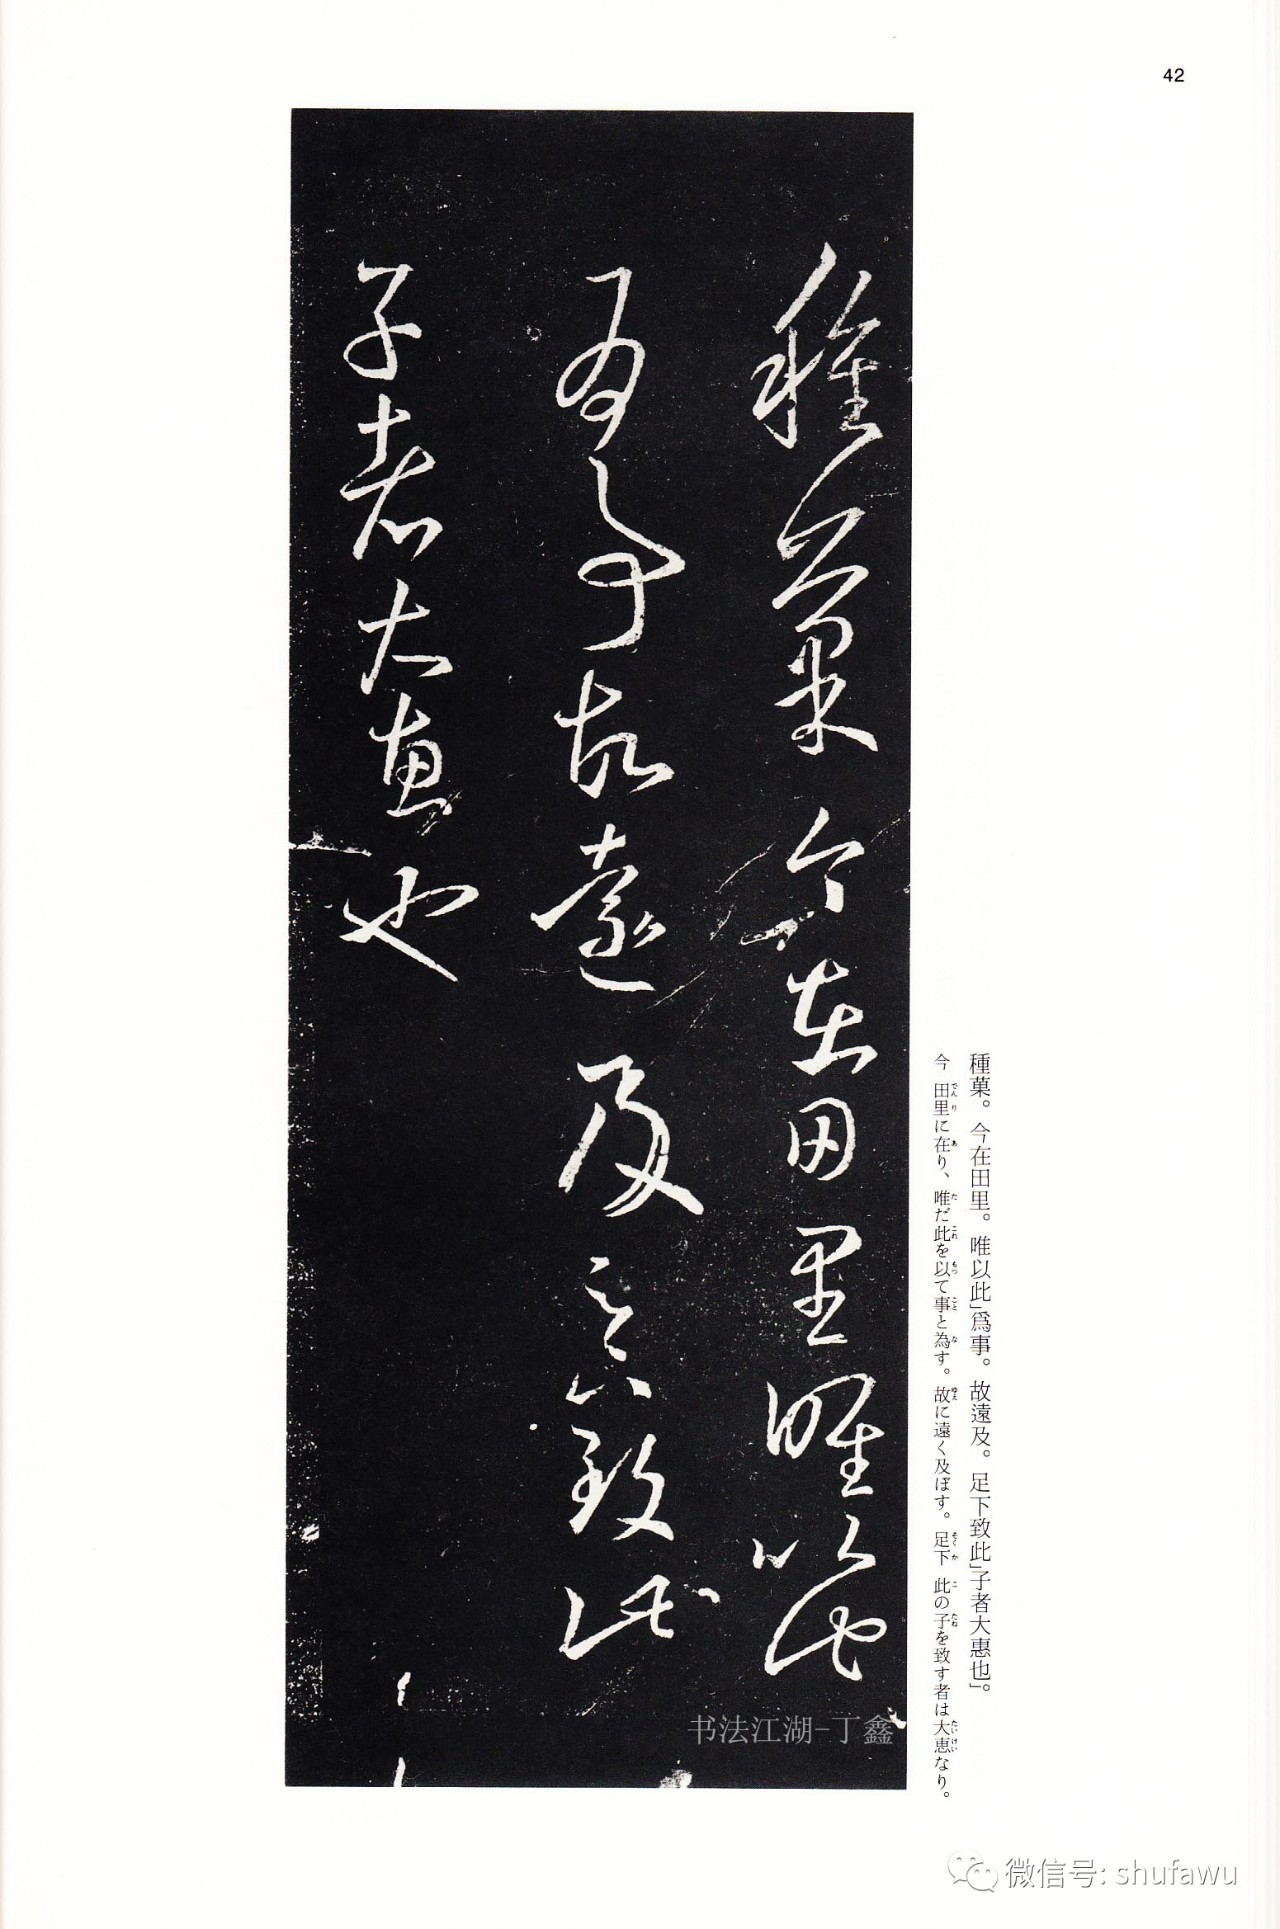 42
種菓今在田里唯以此
爲事故遠及足下致此
子者大惠也
種菓。今在田里。唯以此」爲事。故遠及。足下致此」子者大惠也」。
今 田里に在り、唯だ此を以て事と為す。故に遠く及ぼす。足下 此の子を致す者は大恵なり。
书法江湖-丁鑫
微信号: shufawu